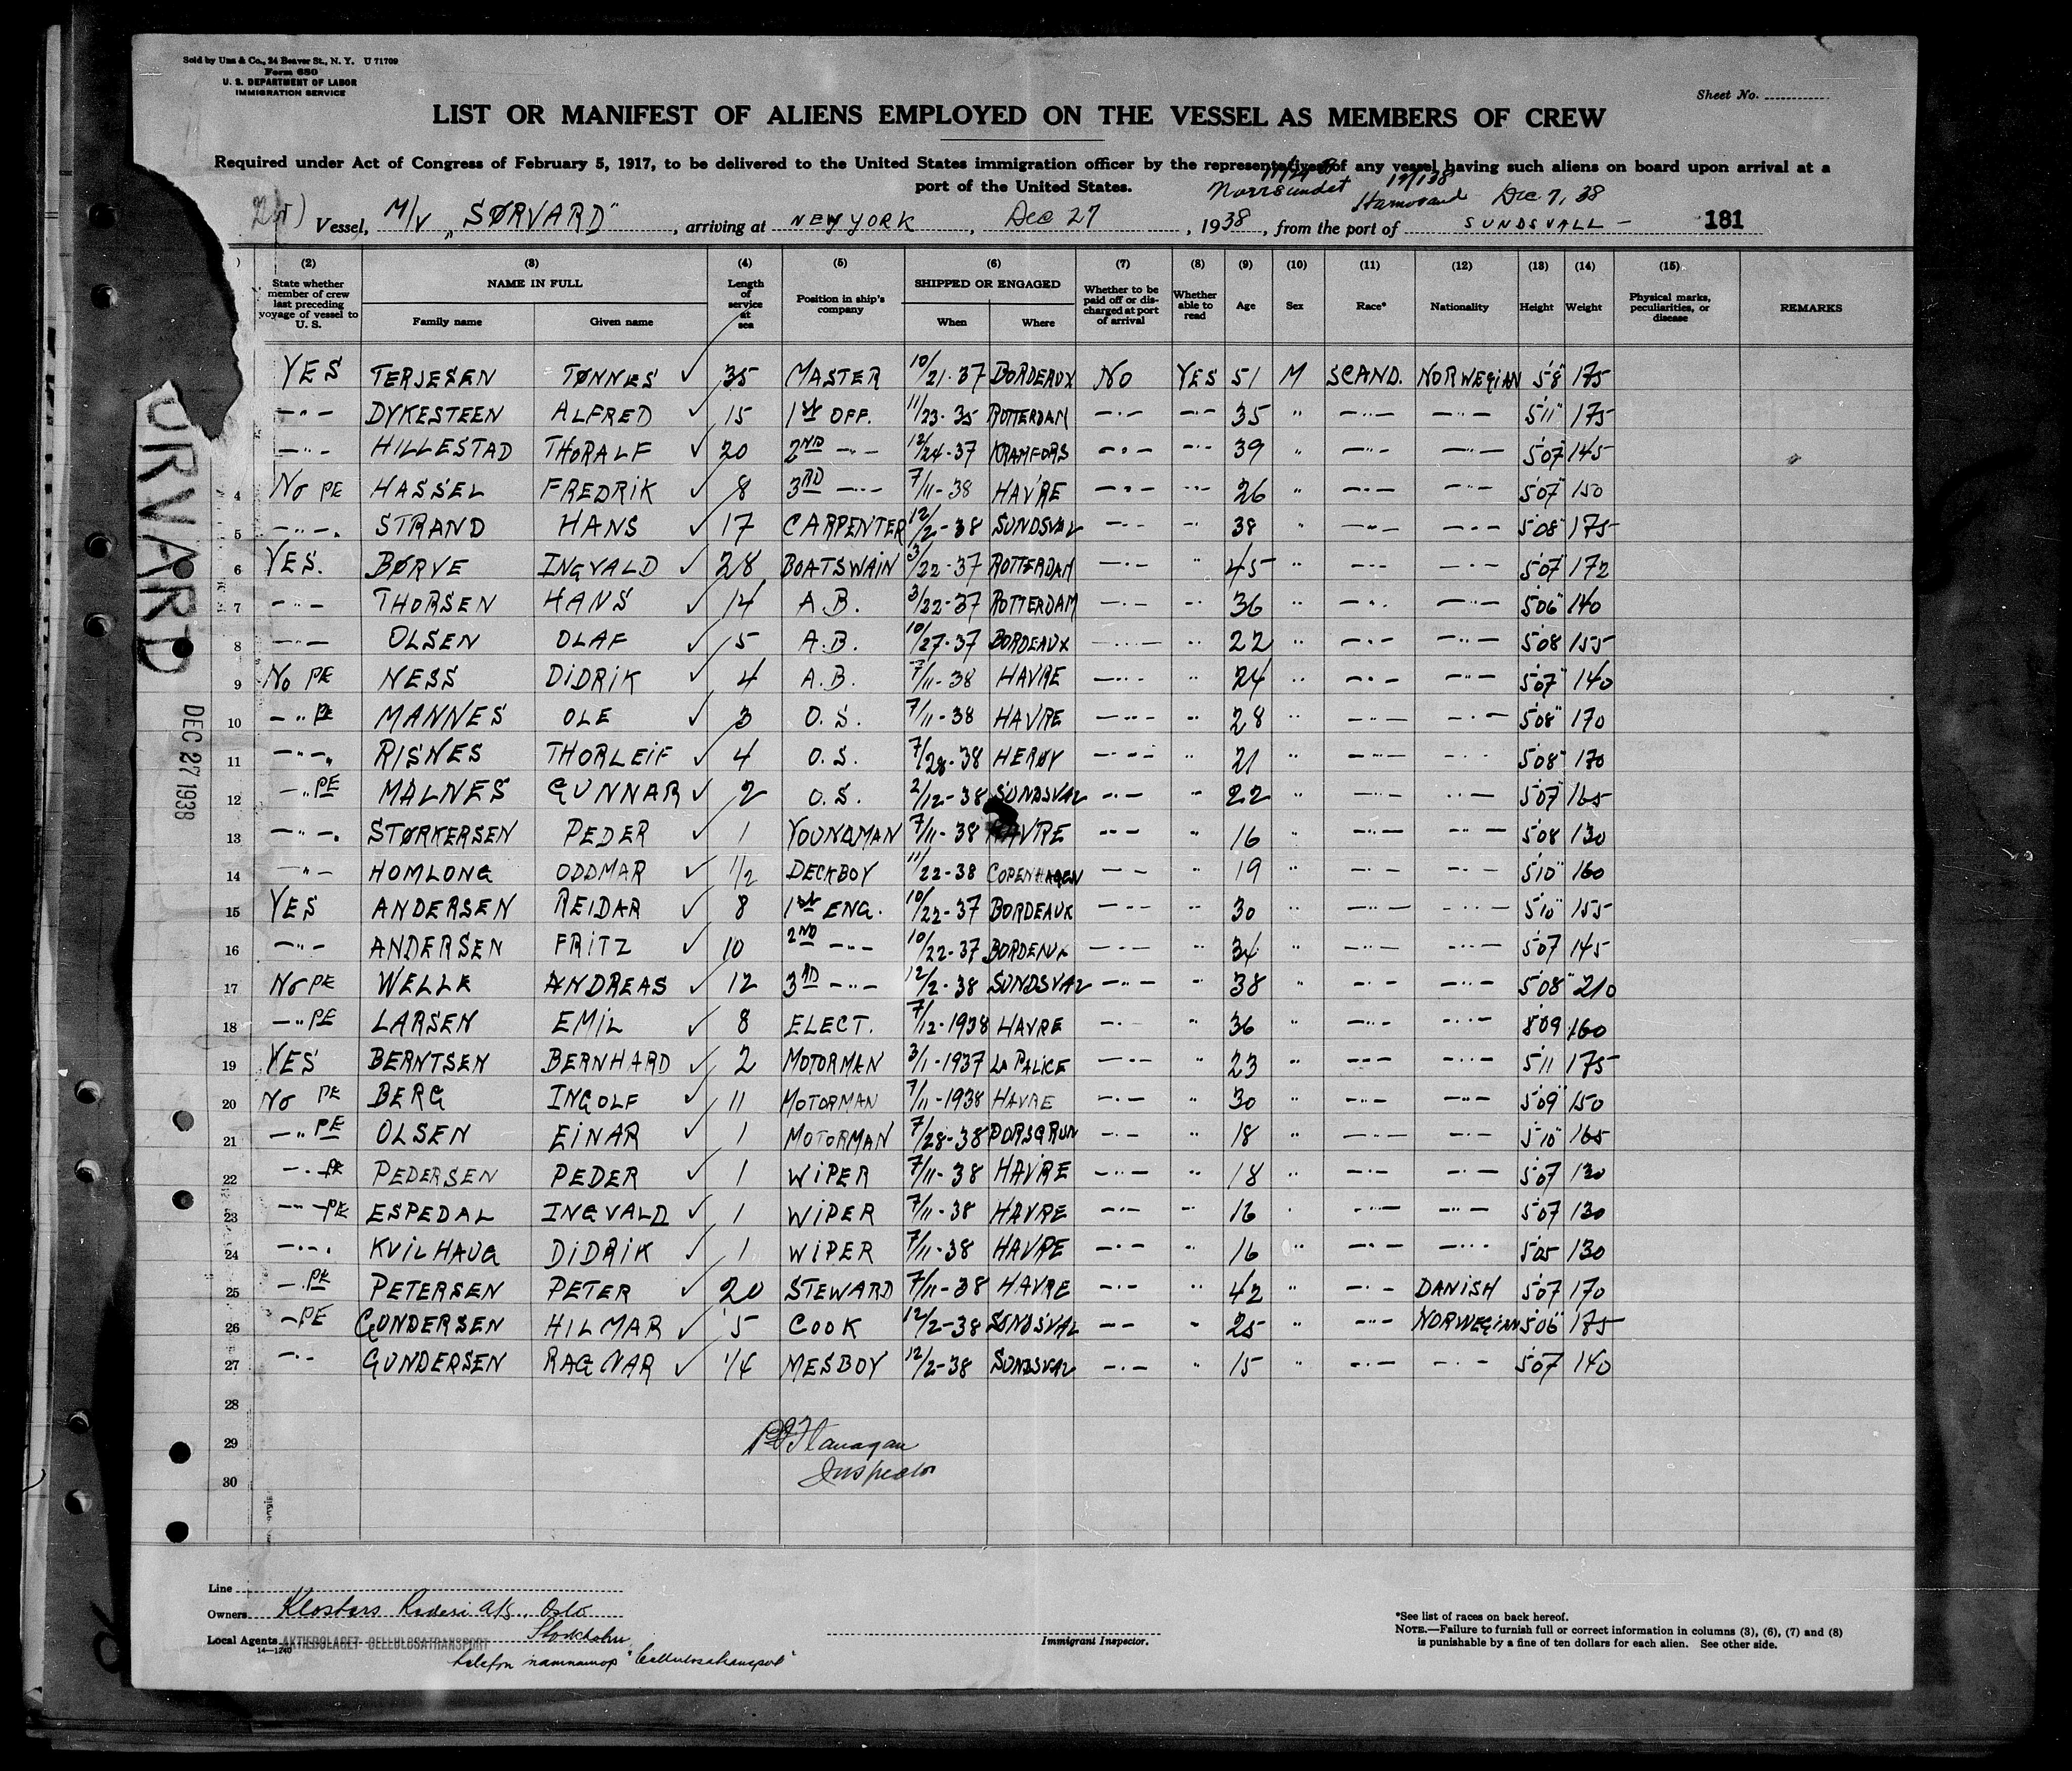 Sold by Unz & Co., 24 Beaver St., N. Y. U 71709
Form 680
U. S. DEPARTMENT OF LABOR
IMMIGRATION SERVICE
Sheet No.
LIST OR MANIFEST OF ALIENS EMPLOYED ON THE VESSEL AS MEMBERS OF CREW
Required under Act of Congress of February 5, 1917, to be delivered to the United States immigration officer by the representatives of any vessel having such aliens on board upon arrival at a
port of the United States.
Norrsundet Dec 7, 38
Vessel, M/V „SØRVARD" , arriving at NEW YORK , Dec 27 , 1938 , from the port of SUNDSVALL – 181
(2) (3) (4) (5) (6) (7) (8) (9) (10) (11) (12) (13) (14) (15)
State whether member of crew last preceding voyage of vessel to U. S. NAME IN FULL Family name Given name Length of service at sea Position in ship's company SHIPPED OR ENGAGED When Where Whether to be paid off or discharged at port of arrival Whether able to read Age Sex Race* Nationality Height Weight Physical marks, peculiarities, or disease REMARKS
YES TERJESEN TØNNES ✓ 35 MASTER 10/21-37 BORDEAUX NO YES 51 M SCAND. NORWEGIAN 5'8" 175
—"— DYKESTEEN ALFRED ✓ 15 1st OFF. 11/23-35 ROTTERDAM —"— —"— 35 " —"— —"— 5'11" 175
—"— HILLESTAD THORALF ✓ 20 2ND —"— 12/24-37 KRAMFORS —"— —"— 39 " —"— —"— 5'07" 145
4 No PE HASSEL FREDRIK ✓ 8 3RD —"— 7/11-38 HAVRE —"— —"— 26 " —"— —"— 5'07" 150
5 —"— STRAND HANS ✓ 17 CARPENTER 12/2-38 SUNDSVAL —"— " 38 " —"— —"— 5'08" 175
6 YES. BØRVE INGVALD ✓ 28 BOATSWAIN 3/22-37 ROTTERDAM —"— " 45 " —"— —"— 5'07" 172
7 —"— THORSEN HANS ✓ 14 A.B. 3/22-37 ROTTERDAM —"— " 36 " —"— —"— 5'06" 140
8 —"— OLSEN OLAF ✓ 5 A.B. 10/27-37 BORDEAUX —"— " 22 " —"— —"— 5'08 155
9 No PE NESS DIDRIK ✓ 4 A.B. 7/11-38 HAVRE —"— " 24 " —"— —"— 5'07" 140
10 —"— PE MANNES OLE ✓ 3 O.S. 7/11-38 HAVRE —"— " 28 " —"— —"— 5'08" 170
11 —"— RISNES THORLEIF ✓ 4 O.S. 7/28-38 HERØY —"— " 21 " —"— —"— 5'08" 170
12 —" PE MALNES GUNNAR ✓ 2 O.S. 2/12-38 SUNDSVAL —"— " 22 " —"— —"— 5'07 165
13 —"— STØRKERSEN PEDER ✓ 1 YOUNGMAN 7/11-38 HAVRE —"— " 16 " —"— —"— 5'08 130
14 —"— HOMLONG ODDMAR ✓ 1/2 DECKBOY 11/22-38 COPENHAGEN —"— " 19 " —"— —"— 5'10" 160
15 YES ANDERSEN REIDAR ✓ 8 1st ENG. 10/22-37 BORDEAUX —"— " 30 " —"— —"— 5'10" 155
16 —"— ANDERSEN FRITZ ✓ 10 2ND —"— 10/22-37 BORDEAUX —"— " 34 " —"— —"— 5'07 145
17 No PE WELLE ANDREAS ✓ 12 3RD —"— 12/2-38 SUNDSVAL —"— " 38 " —"— —"— 5'08" 210
18 —" PE LARSEN EMIL ✓ 8 ELECT. 7/12-1938 HAVRE —"— " 36 " —"— —"— 5'09 160
19 YES BERNTSEN BERNHARD ✓ 2 MOTORMAN 3/1-1937 LA PALICE —"— " 23 " —"— —"— 5'11 175
20 No PE BERG INGOLF ✓ 11 MOTORMAN 7/11-1938 HAVRE —"— " 30 " —"— —"— 5'09" 150
21 —" PE OLSEN EINAR ✓ 1 MOTORMAN 7/28-38 PORSGRUN —"— " 18 " —"— —"— 5'10" 165
22 —" PE PEDERSEN PEDER ✓ 1 WIPER 7/11-38 HAVRE —"— " 18 " —"— —"— 5'07 130
23 —"— PE ESPEDAL INGVALD ✓ 1 WIPER 7/11-38 HAVRE —"— " 16 " —"— —"— 5'07 130
24 —"— KVILHAUG DIDRIK ✓ 1 WIPER 7/11-38 HAVRE —"— " 16 " —"— —"— 5'05 130
25 — PE PETERSEN PETER ✓ 20 STEWARD 7/11-38 HAVRE —"— " 42 " —"— DANISH 5'07 170
26 — PE GUNDERSEN HILMAR ✓ 5 COOK 12/2-38 SUNDSVAL —"— " 25 " —"— NORWEGIAN 5'06" 185
27 —"— GUNDERSEN RAGNAR ✓ 1/4 MESBOY 12/2-38 SUNDSVAL —"— " 15 " —"— —"— 5'07 140
28
29 Flanagan
30 Inspector
ØRVARD
DEC 27 1938
Line
Owners Klosters Rederi A/S., Oslo
Local Agents AKTIEBOLAGET CELLULOSATRANSPORT Stockholm
14—1240
"Cellulosatransport"
Immigrant Inspector.
*See list of races on back hereof.
NOTE.—Failure to furnish full or correct information in columns (3), (6), (7) and (8)
is punishable by a fine of ten dollars for each alien. See other side.